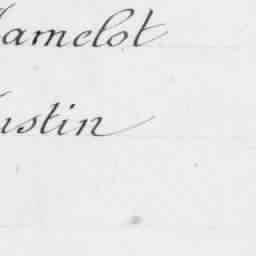 amelot
ustin